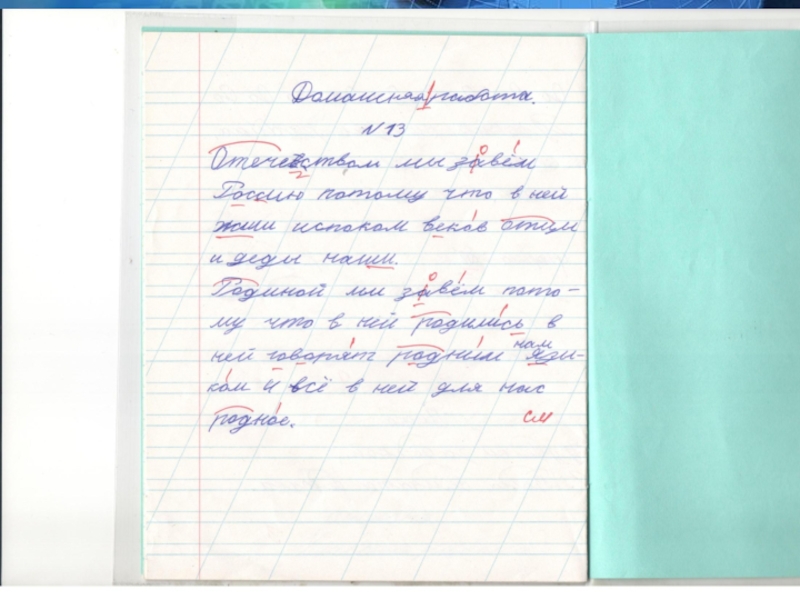 Домашняя работа.
N 13
Отечеством мы завём
Россию потому что в ней
жили испоком веков отцы
и деды наши.
Родиной мы завём пото-
му что в ней родились в
ней говорят родным нам язы-
ком и всё в ней для нас
родное. см